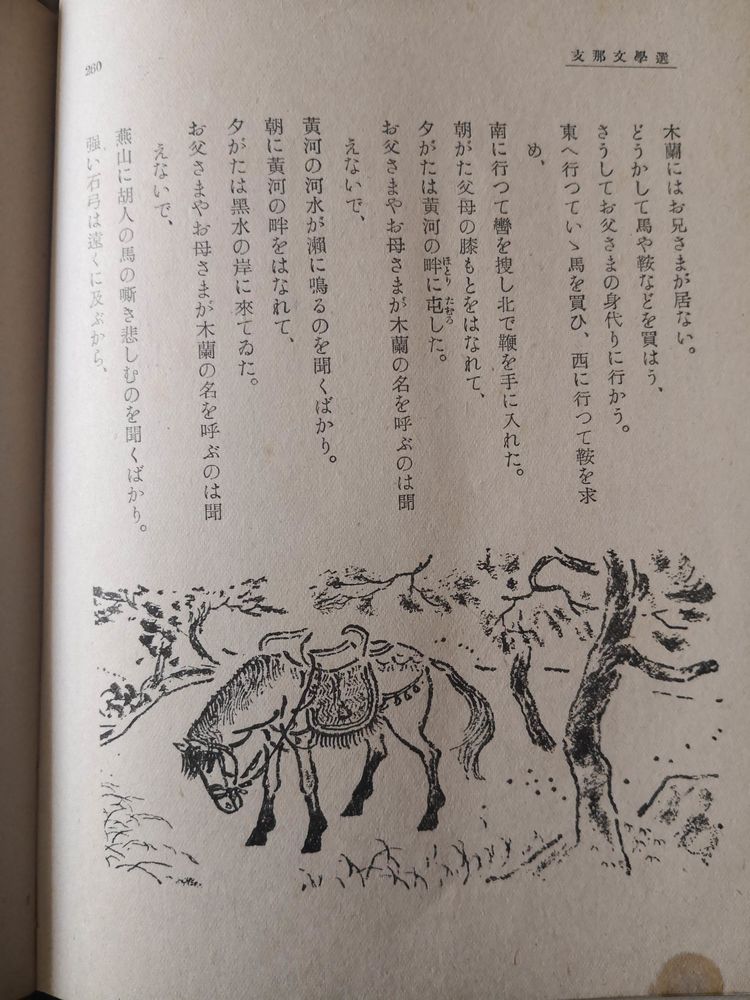 支那文學選
260
木蘭にはお兄さまが居ない。
どうかして馬や鞍などを買はう、
さうしてお父さまの身代りに行かう。
東へ行つていゝ馬を買ひ、西に行つて鞍を求
め、
南に行つて轡を捜し北で鞭を手に入れた。
朝がた父母の膝もとをはなれて、
夕がたは黄河の畔に屯した。
ほとり たむろ
お父さまやお母さまが木蘭の名を呼ぶのは聞
えないで、
黄河の河水が瀬に鳴るのを聞くばかり。
朝に黄河の畔をはなれて、
夕がたは黒水の岸に來てゐた。
お父さまやお母さまが木蘭の名を呼ぶのは聞
えないで、
燕山に胡人の馬の嘶き悲しむのを聞くばかり。
强い石弓は遠くに及ぶから、